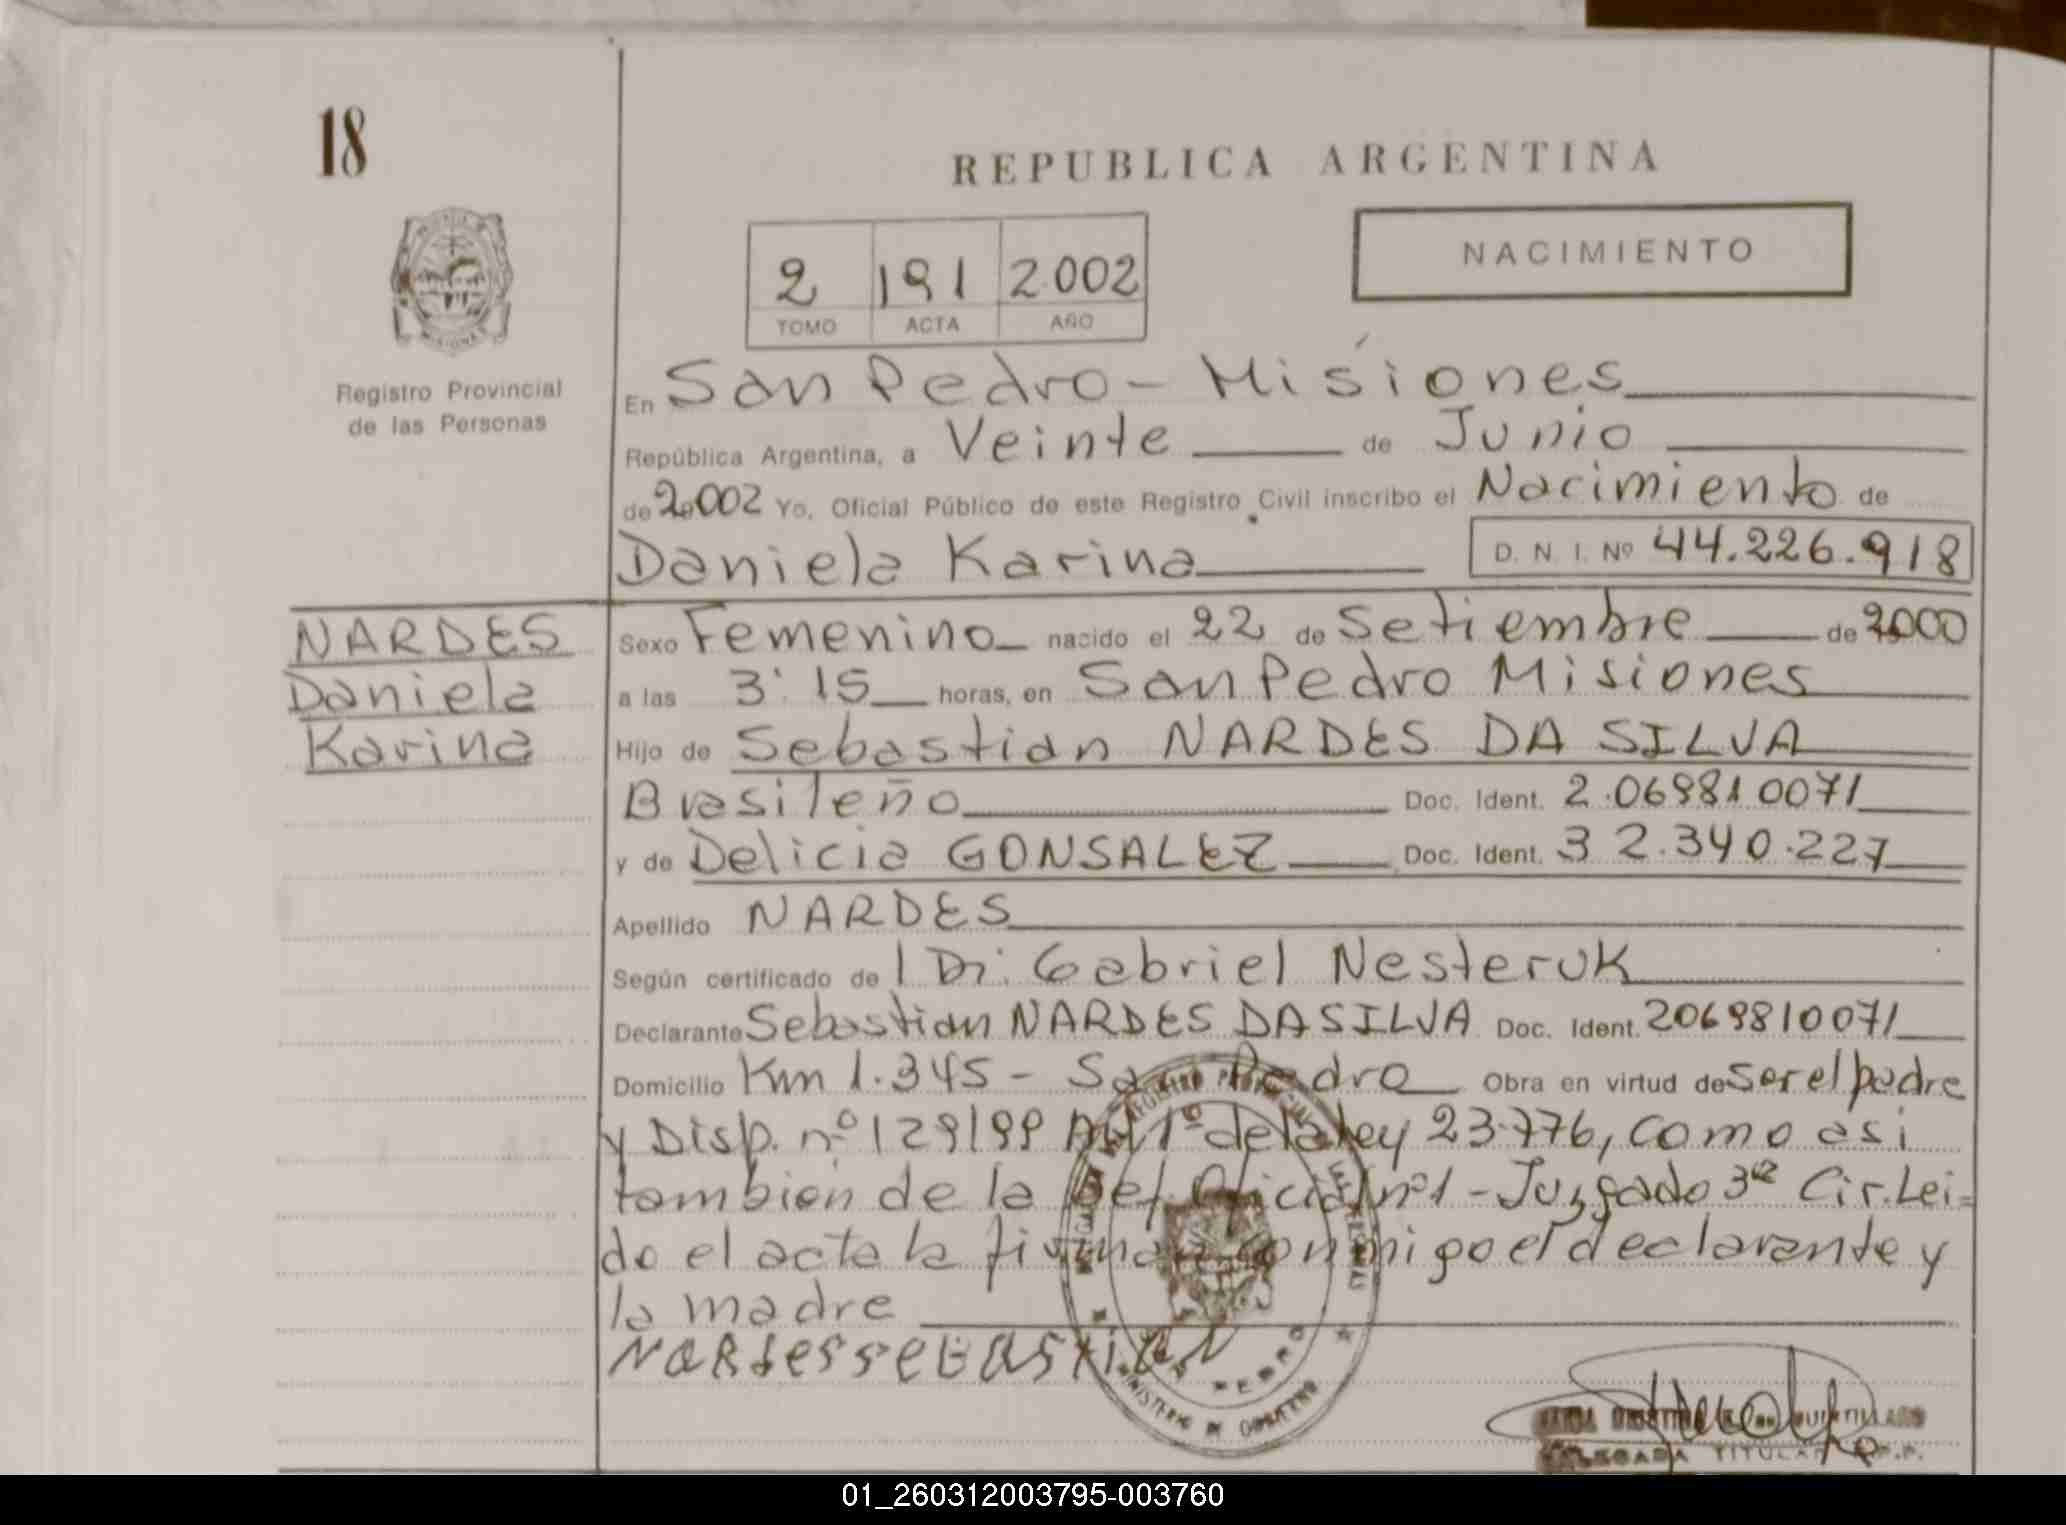 18
REPUBLICA ARGENTINA
NACIMIENTO
2 191 2.002
TOMO ACTA AÑO
Registro Provincial
de las Personas
En San Pedro - Misiones
República Argentina, a Veinte de Junio
de 2.002 Yo, Oficial Público de este Registro Civil inscribo el Nacimiento de
Daniela Karina D. N. I. Nº 44.226.918
NARDES
Daniela
Karina
Sexo Femenino nacido el 22 de Setiembre de 2000
a las 3:15 horas, en San Pedro Misiones
Hijo de Sebastian NARDES DA SILVA
Brasileño Doc. Ident. 2.069810071
y de Delicia GONSALEZ Doc. Ident. 32.340.227
Apellido NARDES
Según certificado de Gabriel Nesteruk
Declarante Sebastian NARDES DA SILVA Doc. Ident. 2069810071
Domicilio Km 1.345 - San Pedro Obra en virtud de Ser el padre
y Disp. nº 129/99 Art 1º de la ley 23.776, como asi
tambien de la Def. Oficial nº1 - Juzgado 3ª Cir. Lei=
do el acta la firman conmigo el declarante y
la madre
NARdes SebAStian
MINISTERIO DE GOBIERNO
PEDRO
TITULAR
01_260312003795-003760